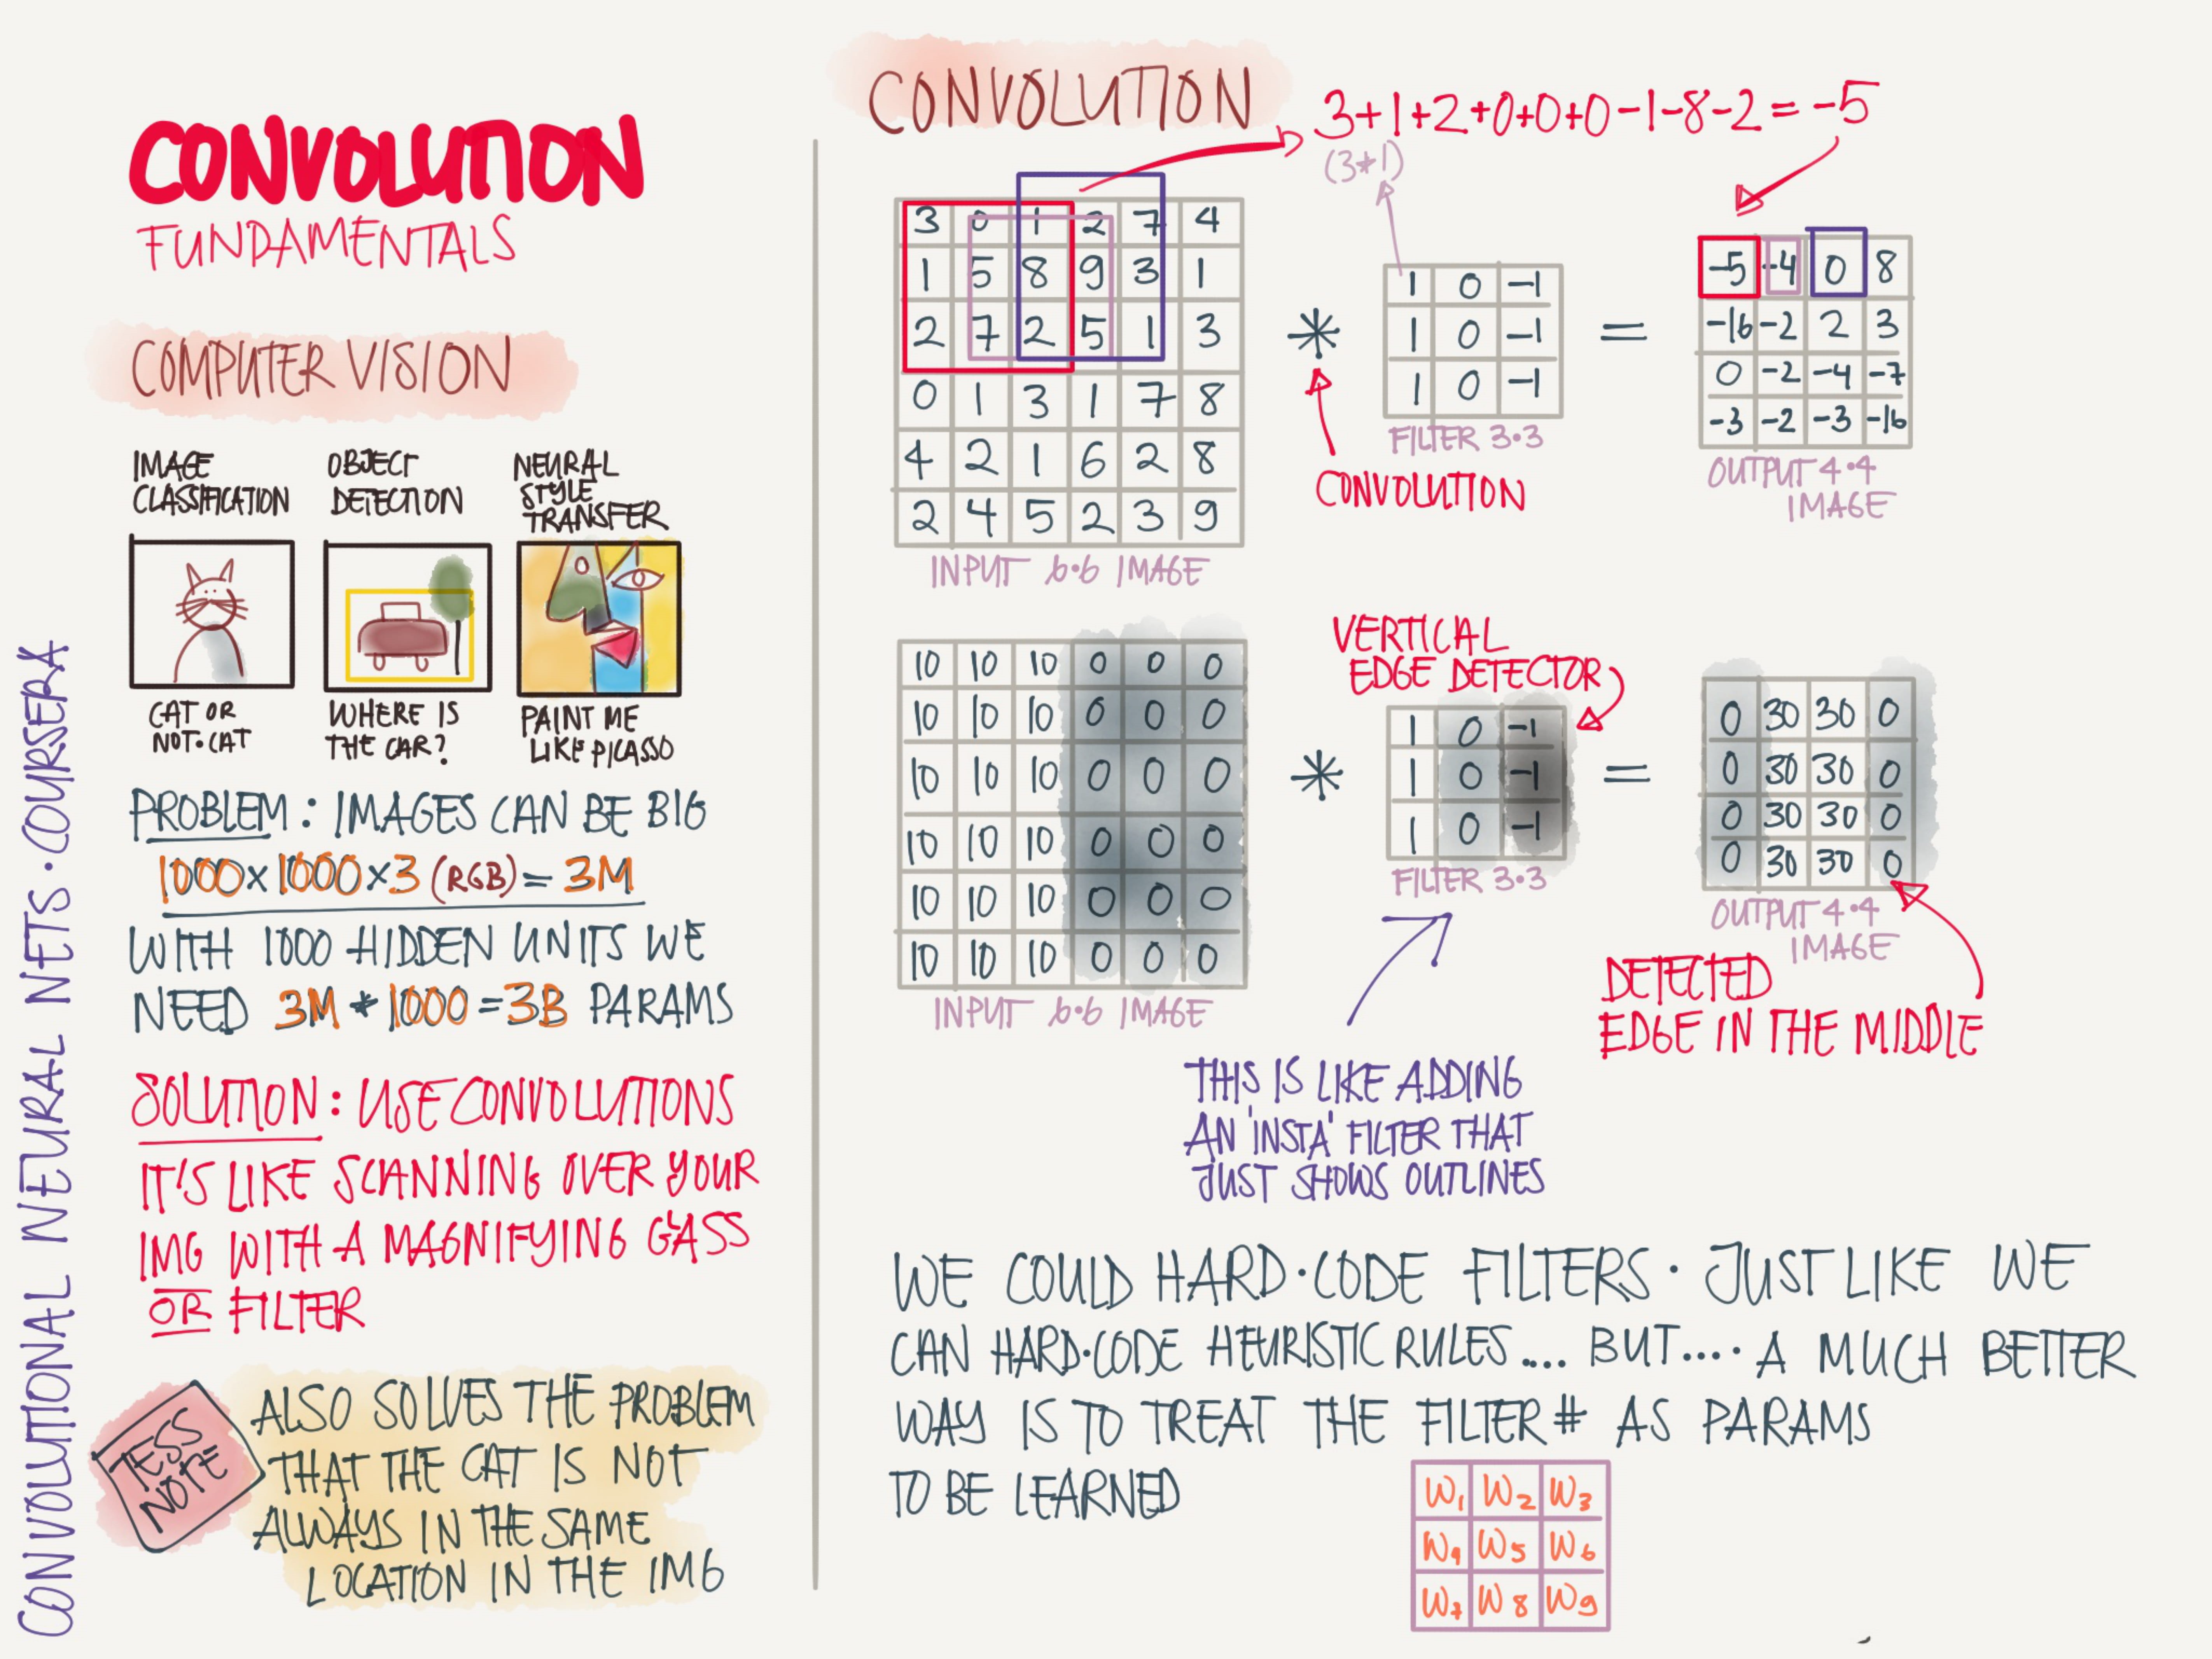 CONVOLUTIONAL NEURAL NETS · COURSERA
CONVOLUTION
FUNDAMENTALS
COMPUTER VISION
IMAGE
CLASSIFICATION
CAT OR
NOT·CAT
OBJECT
DETECTION
WHERE IS
THE CAR?
NEURAL
STYLE
TRANSFER
PAINT ME
LIKE PICASSO
PROBLEM: IMAGES CAN BE BIG
1000 x 1000 x 3 (RGB) = 3M
WITH 1000 HIDDEN UNITS WE
NEED 3M * 1000 = 3B PARAMS
SOLUTION: USE CONVOLUTIONS
IT'S LIKE SCANNING OVER YOUR
IMG WITH A MAGNIFYING GASS
OR FILTER
TESS
NOTE
ALSO SOLVES THE PROBLEM
THAT THE CAT IS NOT
ALWAYS IN THE SAME
LOCATION IN THE IMG
CONVOLUTION
3+1+2+0+0+0-1-8-2 = -5
(3*1)
3 0 1 2 7 4
1 5 8 9 3 1
2 7 2 5 1 3
0 1 3 1 7 8
4 2 1 6 2 8
2 4 5 2 3 9
INPUT 6·6 IMAGE
*
CONVOLUTION
1 0 -1
1 0 -1
1 0 -1
FILTER 3·3
=
-5 -4 0 8
-16 -2 2 3
0 -2 -4 -7
-3 -2 -3 -16
OUTPUT 4·4
IMAGE
10 10 10 0 0 0
10 10 10 0 0 0
10 10 10 0 0 0
10 10 10 0 0 0
10 10 10 0 0 0
10 10 10 0 0 0
INPUT 6·6 IMAGE
*
VERTICAL
EDGE DETECTOR
1 0 -1
1 0 -1
1 0 -1
FILTER 3·3
=
0 30 30 0
0 30 30 0
0 30 30 0
0 30 30 0
OUTPUT 4·4
IMAGE
DETECTED
EDGE IN THE MIDDLE
THIS IS LIKE ADDING
AN 'INSTA' FILTER THAT
JUST SHOWS OUTLINES
WE COULD HARD·CODE FILTERS · JUST LIKE WE
CAN HARD·CODE HEURISTIC RULES.... BUT.... A MUCH BETTER
WAY IS TO TREAT THE FILTER # AS PARAMS
TO BE LEARNED
W1 W2 W3
W4 W5 W6
W7 W8 W9